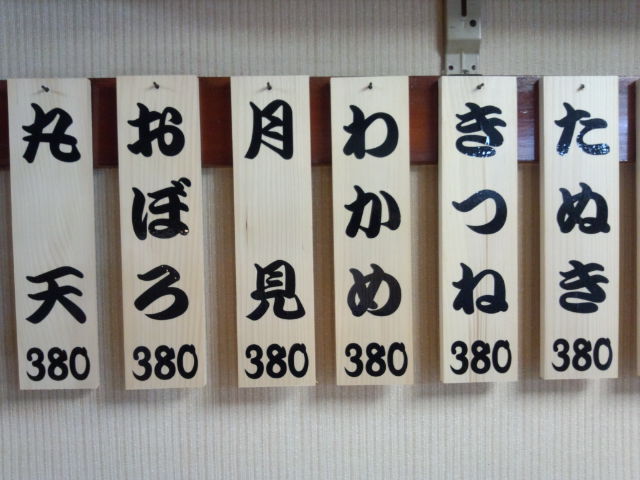 たぬき 380
きつね 380
わかめ 380
月見 380
おぼろ 380
丸天 380